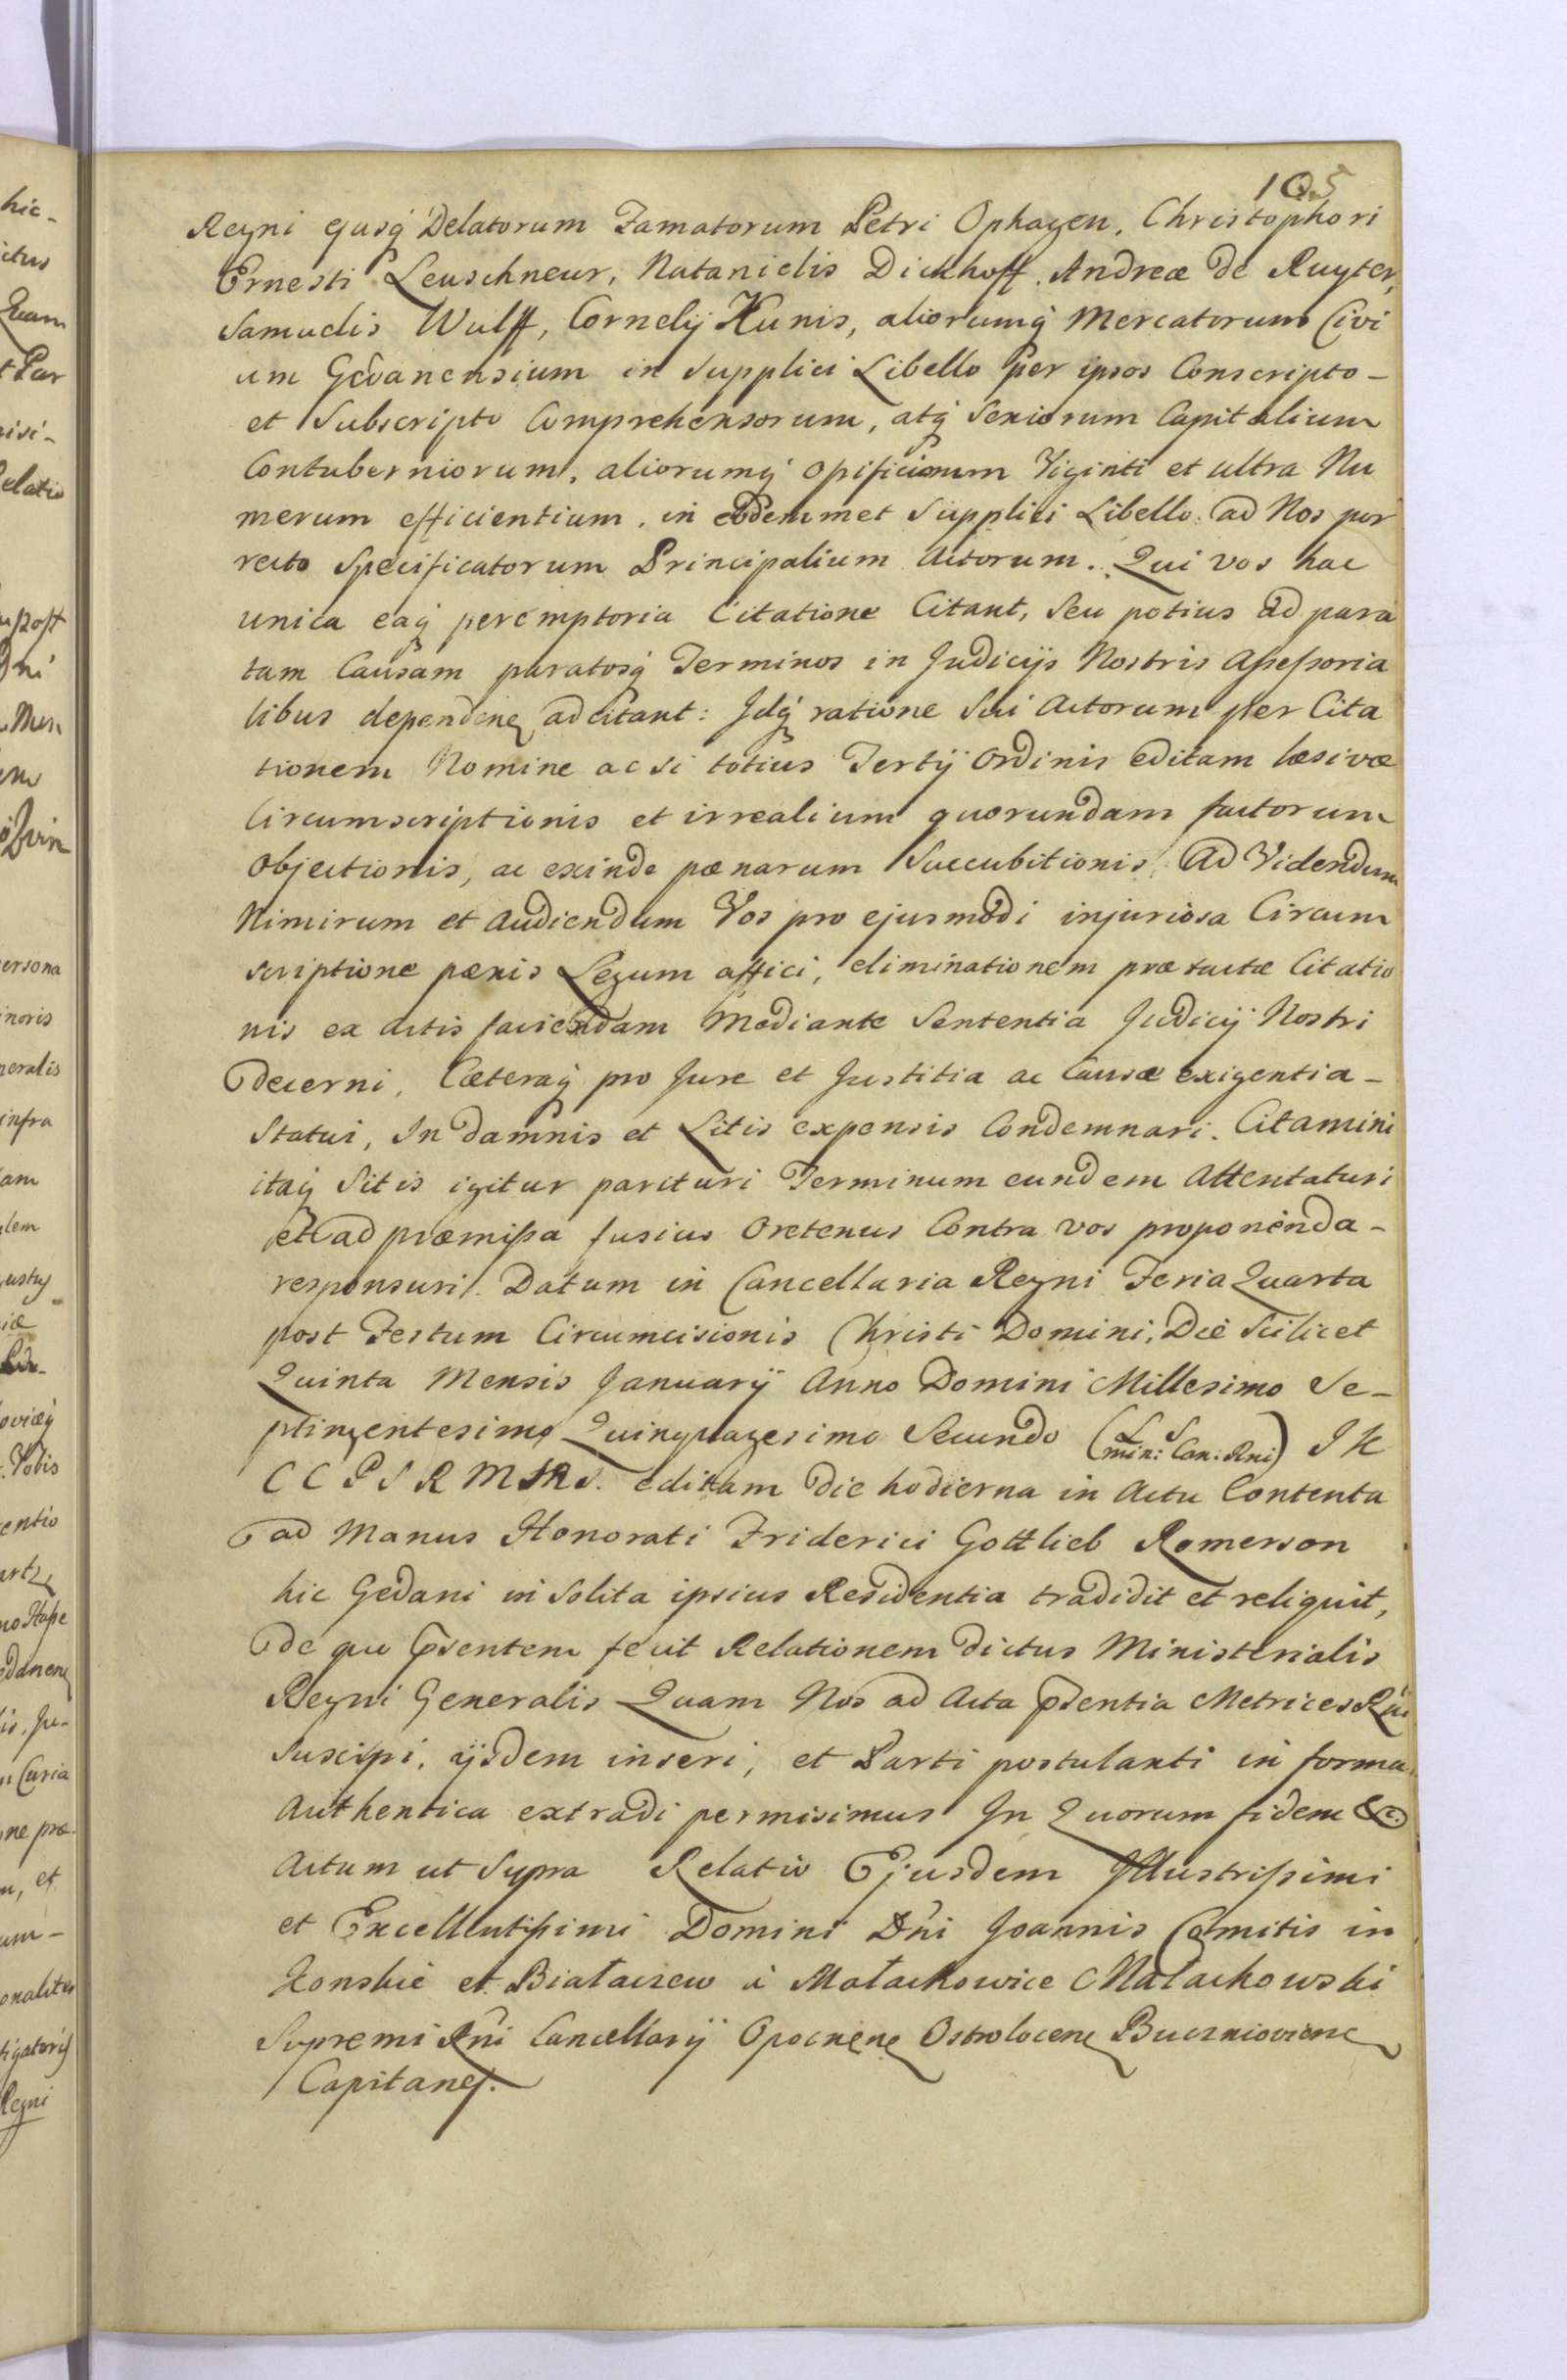 105
Regni ejusq Delatorum Famatorum Petri Ophagen, Christophori
Ernesti Leuschneur, Natanielis Dickhoff, Andreæ de Ruyter,
Samuelis Wulff, Cornelij Kunis, aliorumq Mercatorum Civi
um Gedanensium in Supplici Libello per ipsos Conscripto-
et Subscripto Comprehensorum, atq Seniorum Capitalium
Contuberniorum, aliorumq opificiorum Viginti et ultra Nu
merum efficientium, in eodemmet Supplici Libello ad Nos por
recto Specificatorum Principalium Actorum. Qui vos hac
unica eaq peremptoria Citatione Citant, seu potius ad para
tam Causam paratosq Terminos in Judicijs Nostris Assessoria
libus dependen adcitant: Idq ratione Sui Actorum per Cita
tionem Nomine ac si totius Tertij Ordinis editam læsivæ
Circumscriptionis et irrealium quorundam factorum
Objectionis, ac exinde pænarum Succubitionis. Ad Videndum
Nimirum et Audiendum Vos pro ejusmodi injuriosa Circum
scriptione pænis Legum affici, eliminationem prætactæ Citatio
nis ex Actis faciendam Mediante Sententia Judicij Nostri
decerni, Cæteraq pro Jure et Justitia ac Causæ exigentia-
Statui, In damnis et Litis expensis Condemnari. Citamini
itaq Sitis igitur parituri Terminum eundem Attentaturi
et ad præmissa fusius Oretenus Contra vos proponenda-
responsuri. Datum in Cancellaria Regni Feria Quarta
post Festum Circumcisionis Christi Domini, Die Scilicet
Quinta Mensis Januarij Anno Domini Millesimo Se-
ptingentesimo Quinquagesimo Secundo (L S min: Can: Rni) J K
C C P S R M editam die hodierna in Actu Contenta
ad Manus Honorati Friderici Gottlieb Romerson
hic Gedani in Solita ipsius Residentia tradidit et reliquit,
de quo psentem fecit Relationem dictus Ministerialis
Regni Generalis Quam Nos ad Acta psentia Metrices Rni
Suscipi, ijsdem inseri, et Parti postulanti in forma
Authentica extradi permisimus In Quorum fidem &c.
Actum ut Supra Relatio Ejusdem Illustrissimi
et Excellentissimi Domini Dni Joannis Comitis in
Konskie et Białaczew à Małachowice Małachowski
Supremi Rni Cancellarij Opocnen Ostrolocen Bucznioviene
Capitanei.